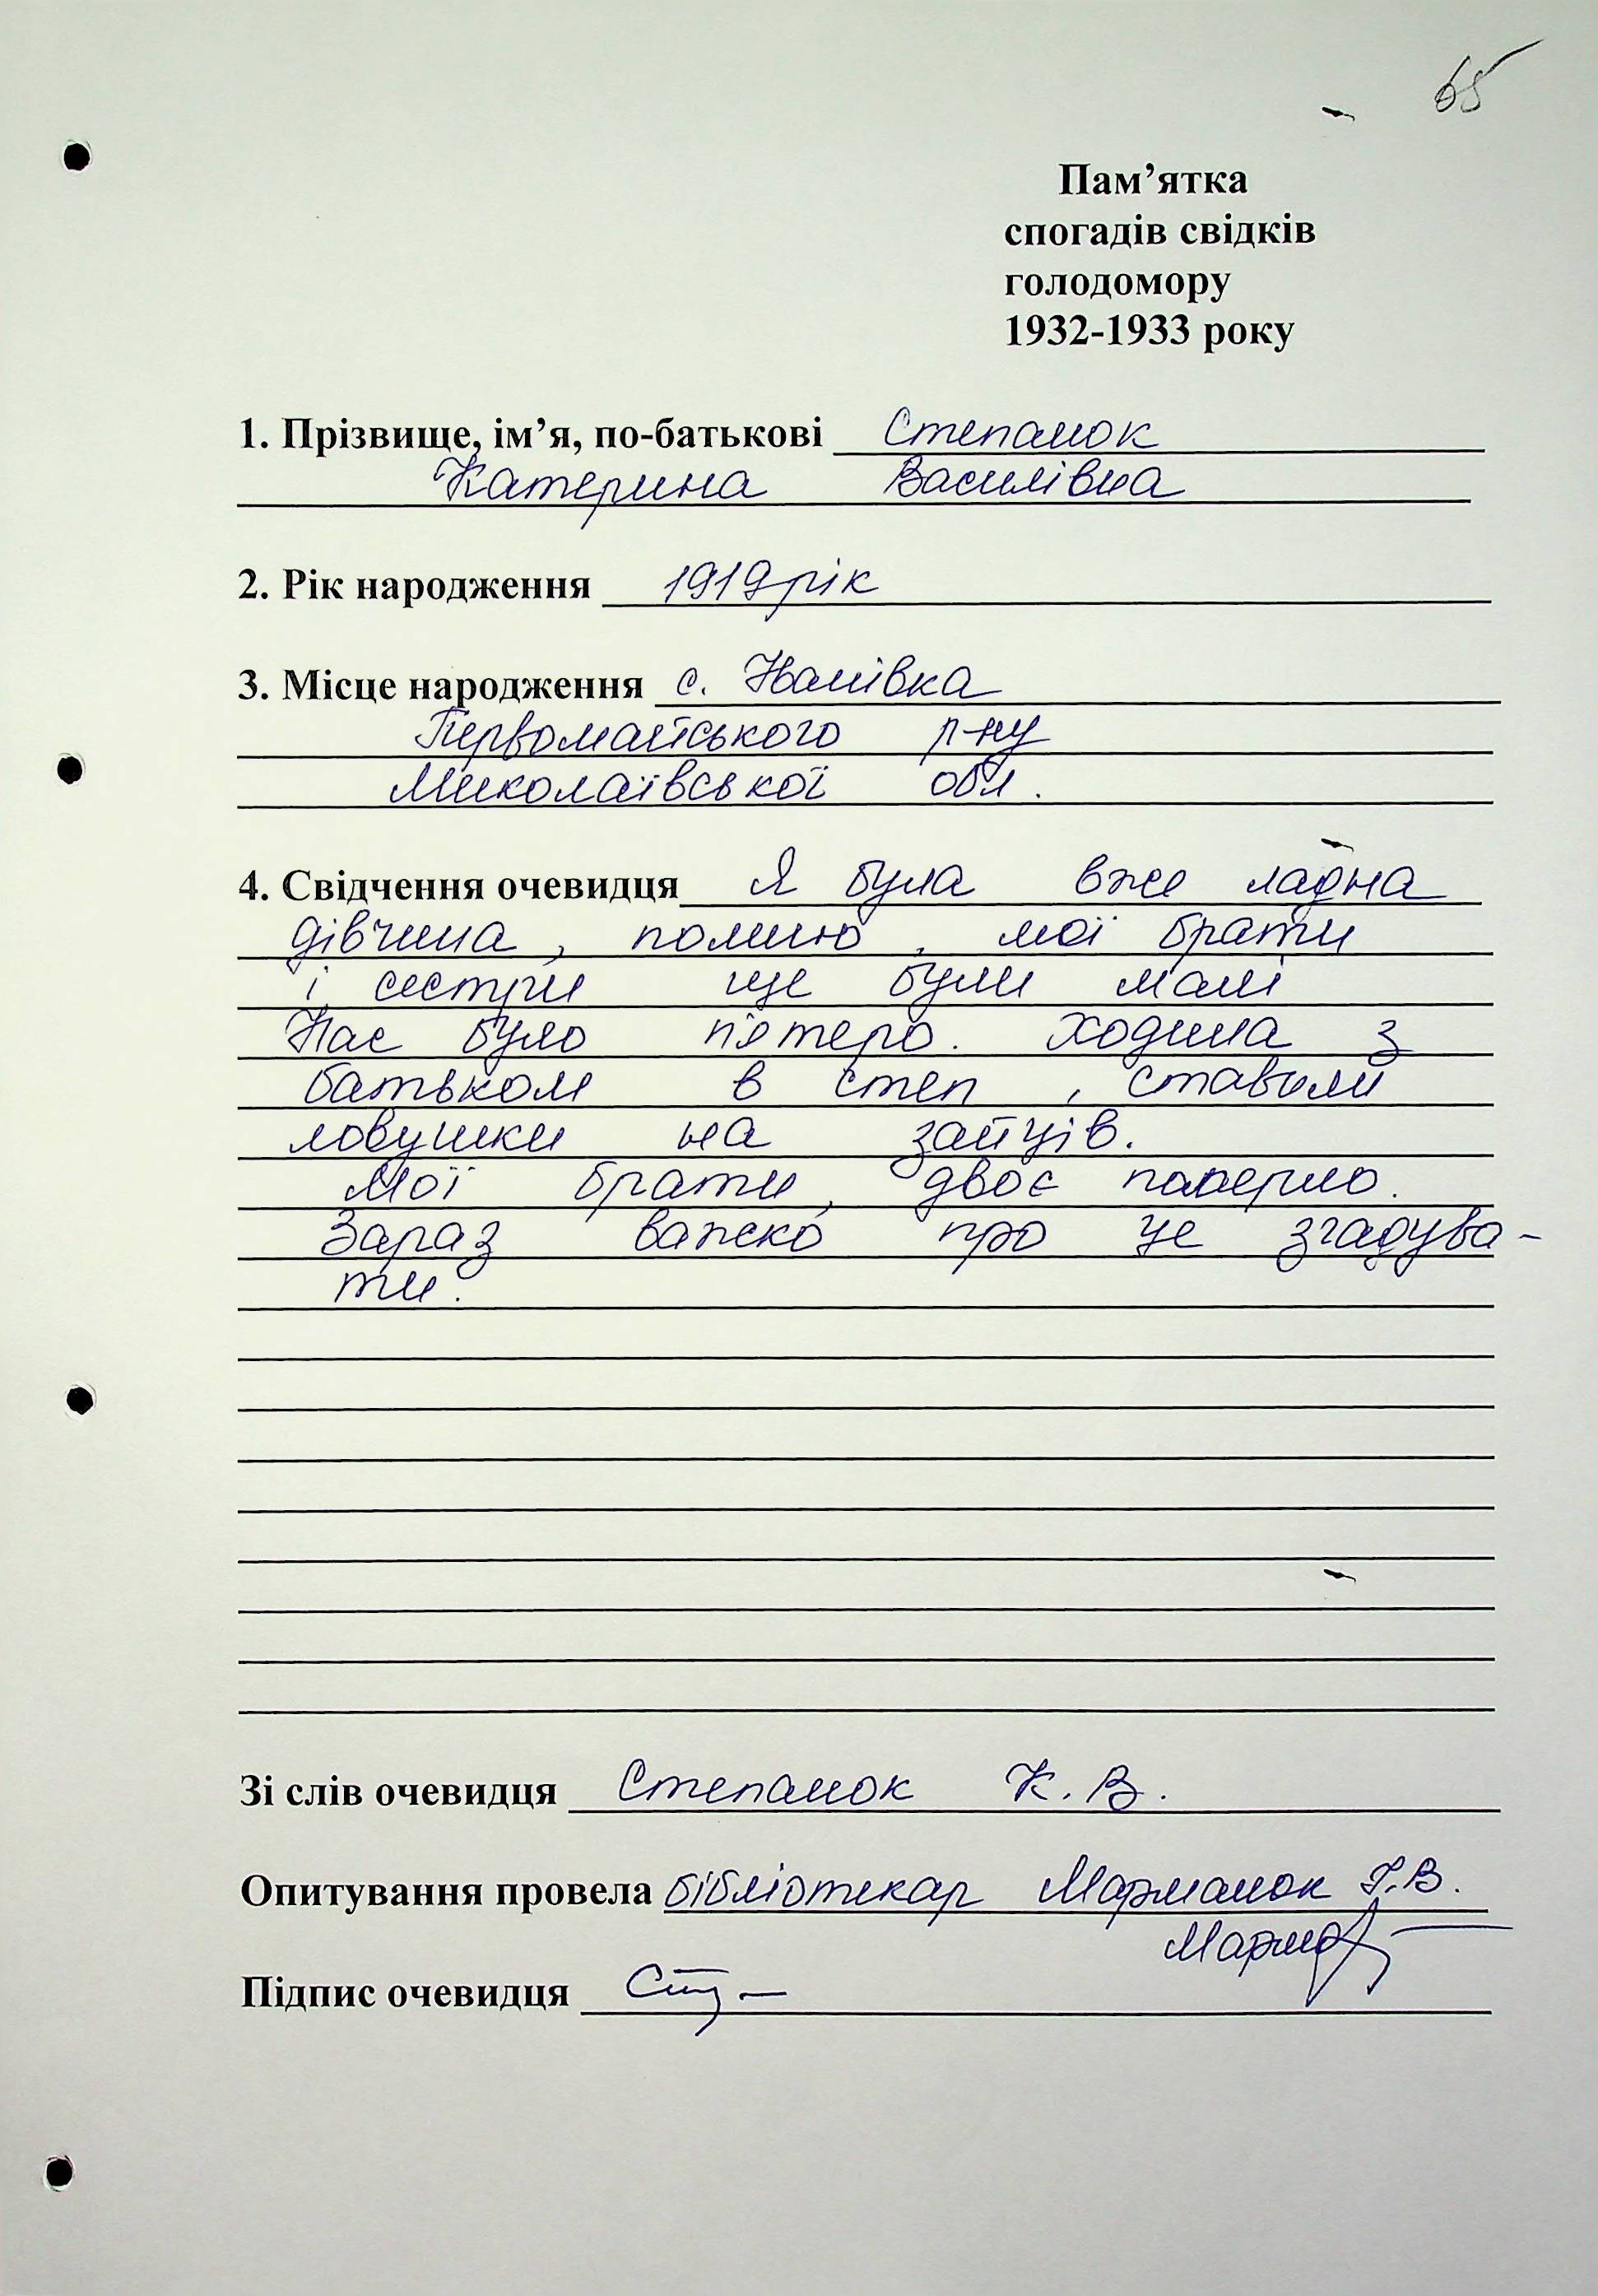 65
Пам’ятка
спогадів свідків
голодомору
1932-1933 року
1. Прізвище, ім’я, по-батькові Степанюк
Катерина Василівна
2. Рік народження 1919 рік
3. Місце народження с.
Первомайського р-ну
Миколаївської обл.
4. Свідчення очевидця Я була вже ладна
дівчина, помню, мої брати
і сестри ще були малі
Нас було п'ятеро. Ходила з
батьком в степ, ставили
ловушки на зайців.
Мої брати, двоє померло.
Зараз важко про це згадува-
ти.
Зі слів очевидця Степанюк К. В.
Опитування провела бібліотекар Марманюк Г.В.
Підпис очевидця